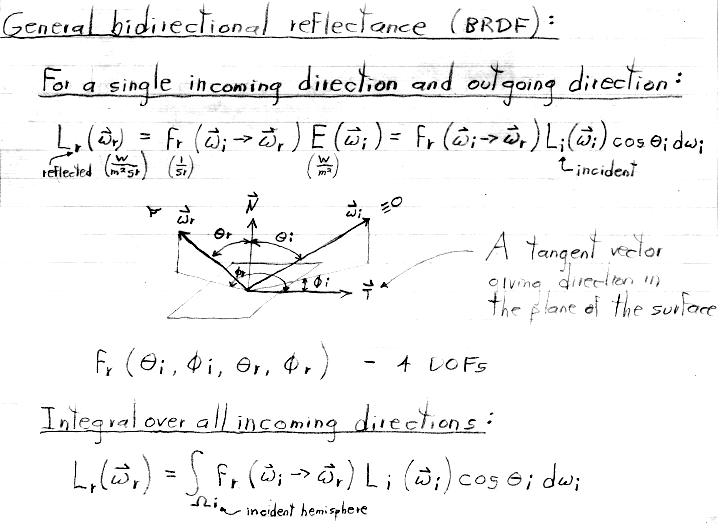 General bidirectional reflectance (BRDF):
For a single incoming direction and outgoing direction:
L_r(ω⃗_r) = f_r (ω⃗_i → ω⃗_r) E(ω⃗_i) = f_r (ω⃗_i → ω⃗_r) L_i(ω⃗_i) cos θ_i dω_i
reflected (W/m²sr) (1/sr) (W/m²) incident
ω⃗_r N⃗ ω⃗_i
θ_r θ_i
ϕ_r ϕ_i T⃗
A tangent vector
giving direction in
the plane of the surface
f_r (θ_i, ϕ_i, θ_r, ϕ_r) - 4 DOFs
Integral over all incoming directions:
L_r(ω⃗_r) = ∫_Ω_i f_r (ω⃗_i → ω⃗_r) L_i (ω⃗_i) cos θ_i dω_i
incident hemisphere